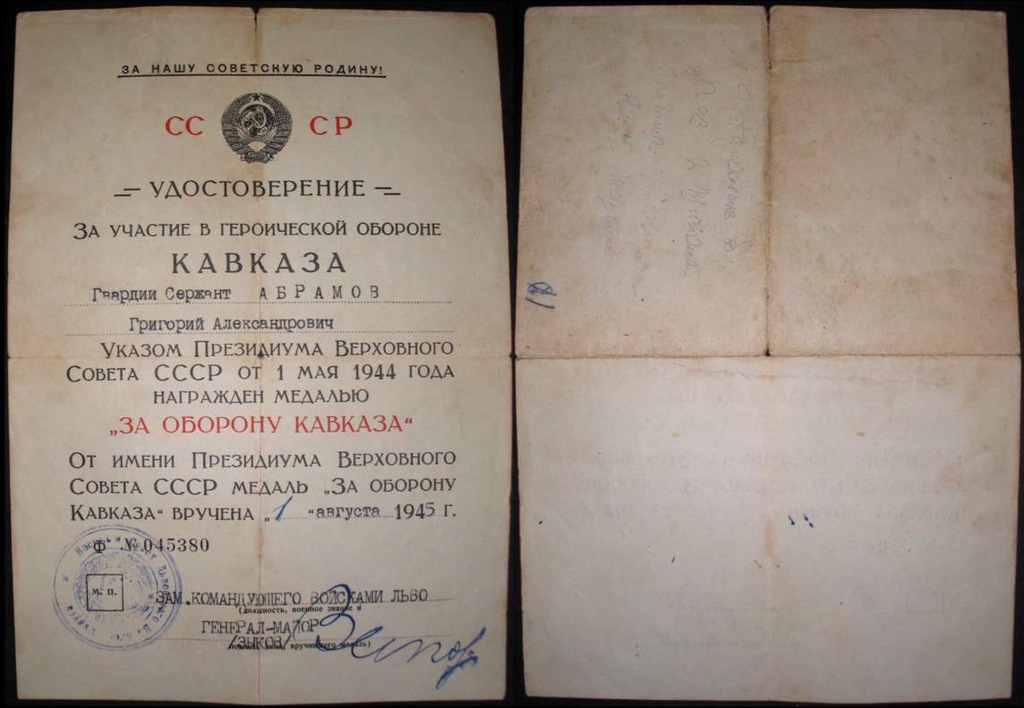 ЗА НАШУ СОВЕТСКУЮ РОДИНУ!
СС СР
УДОСТОВЕРЕНИЕ
ЗА УЧАСТИЕ В ГЕРОИЧЕСКОЙ ОБОРОНЕ
КАВКАЗА
Гвардии Сержант АБРАМОВ
Григорий Александрович
УКАЗОМ ПРЕЗИДИУМА ВЕРХОВНОГО
СОВЕТА СССР ОТ 1 МАЯ 1944 ГОДА
НАГРАЖДЕН МЕДАЛЬЮ
„ЗА ОБОРОНУ КАВКАЗА“
ОТ ИМЕНИ ПРЕЗИДИУМА ВЕРХОВНОГО
СОВЕТА СССР МЕДАЛЬ „ЗА ОБОРОНУ
КАВКАЗА“ ВРУЧЕНА „1“ августа 1945 Г.
Ф №045380
М. П.
ЗАМ.КОМАНДУЮЩЕГО ВОЙСКАМИ ЛЬВО
(должность, военное звание и
ГЕНЕРАЛ-МАЙОР
/ЗЫКОВ/
вручившего медаль)